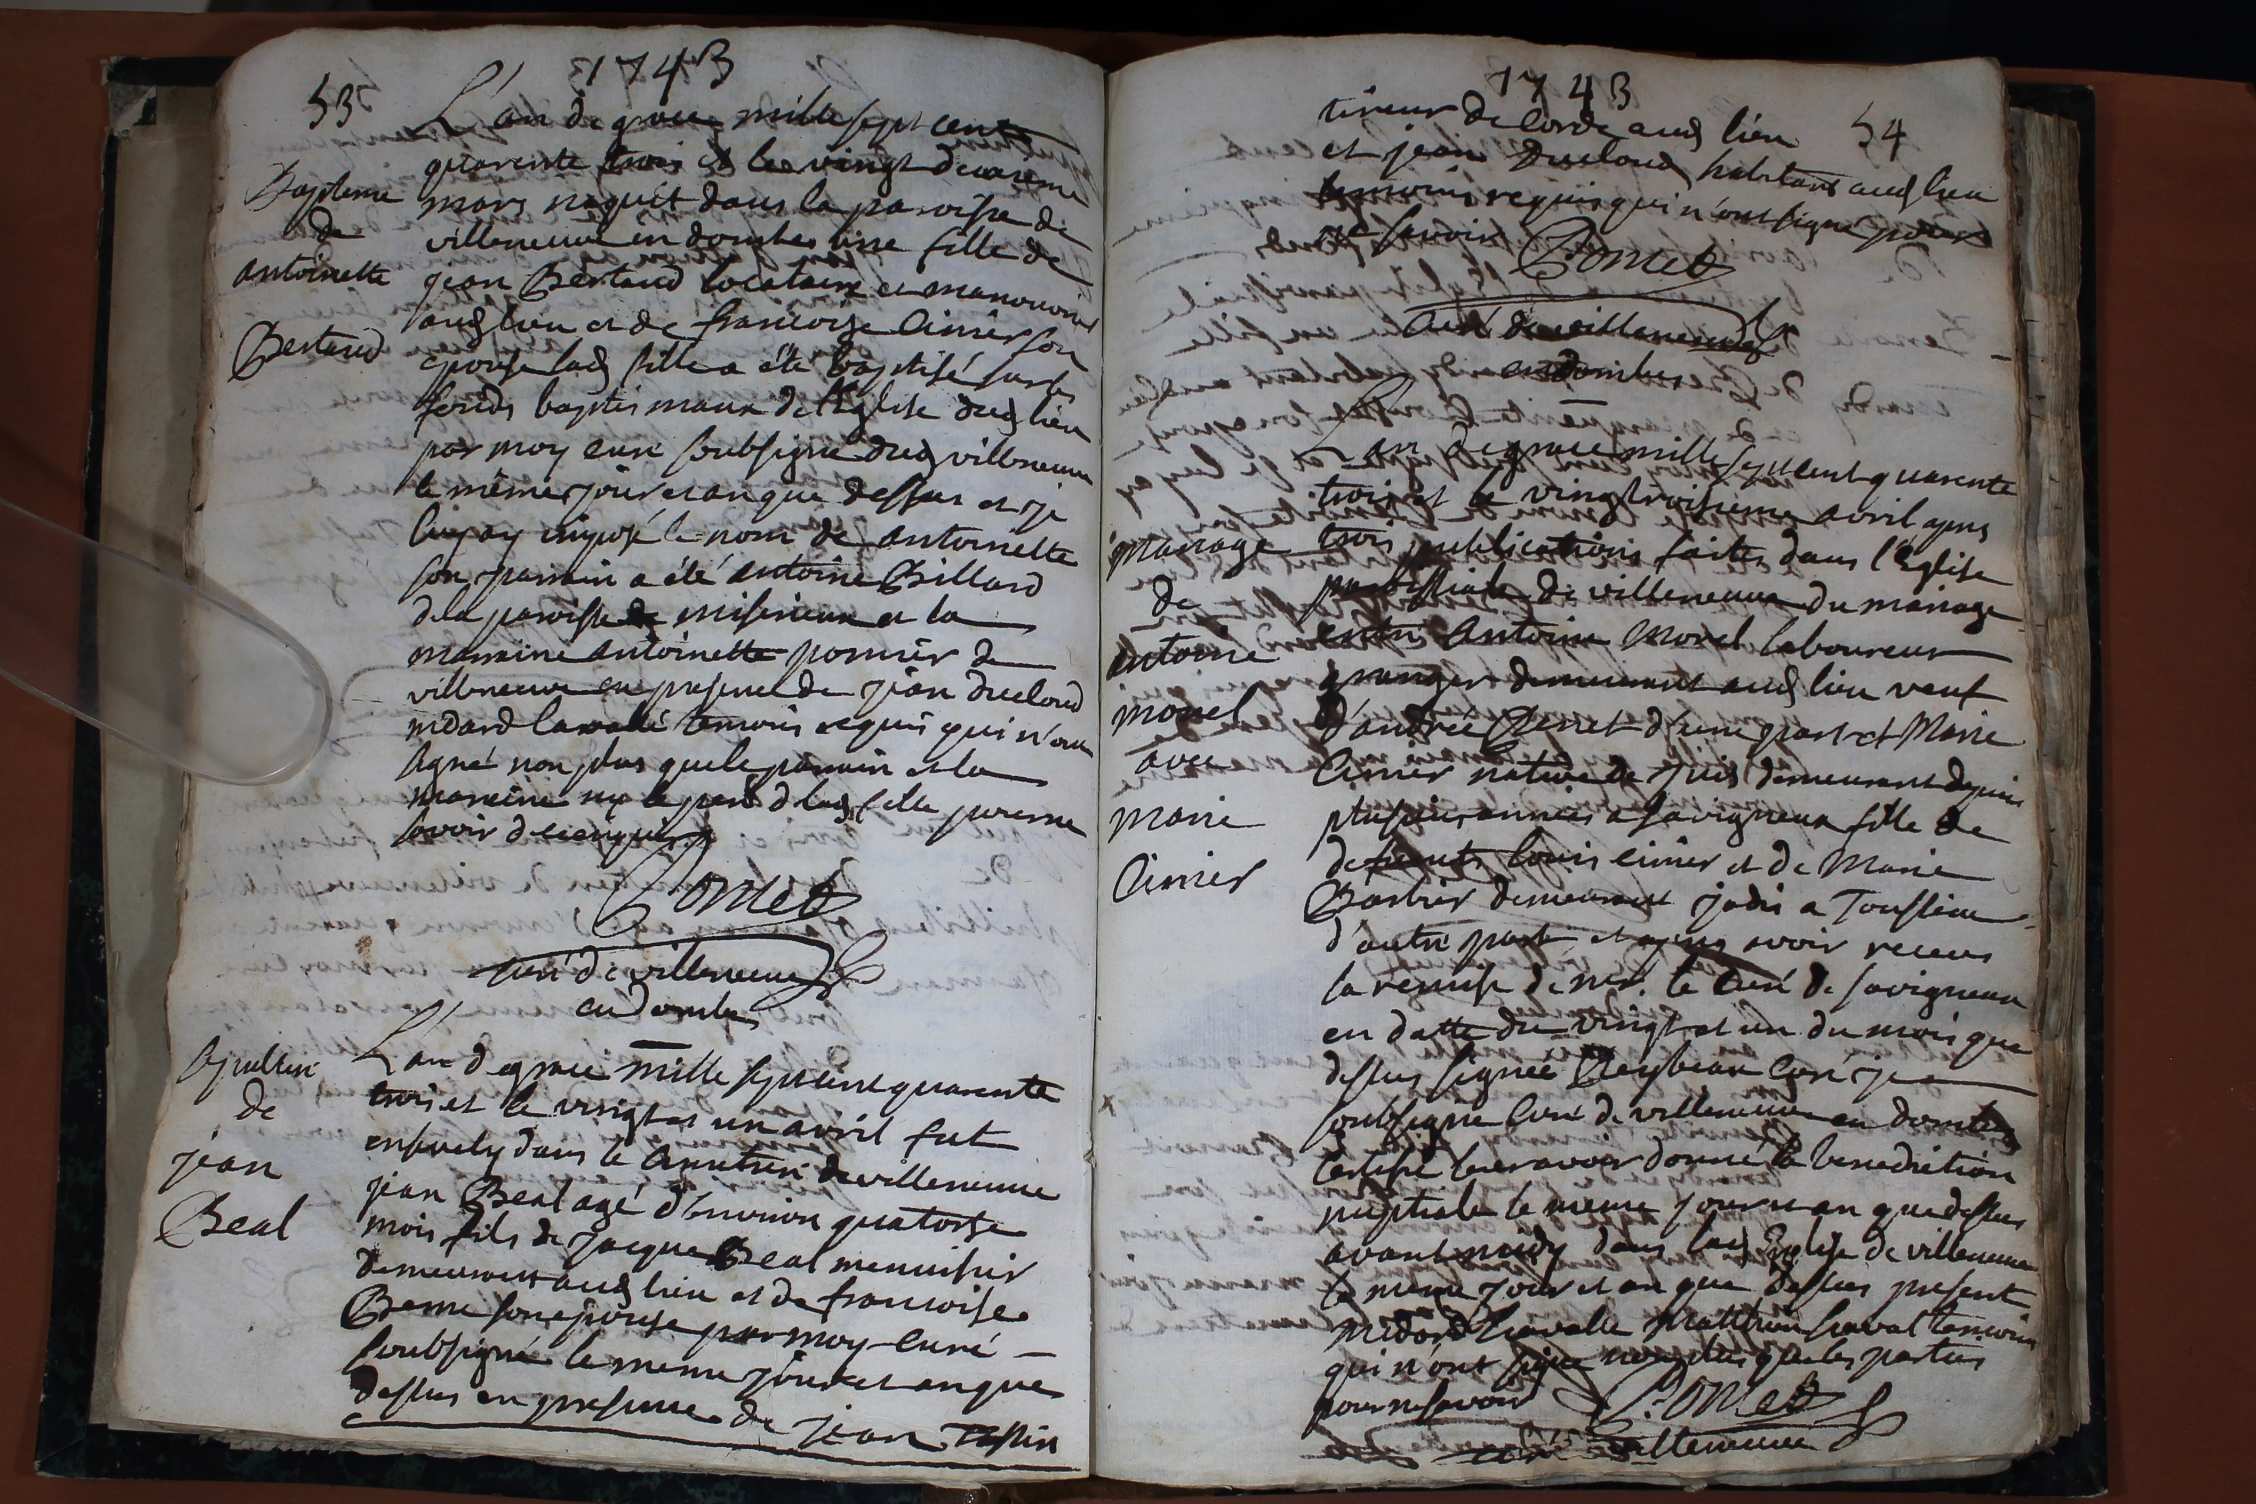 1743
53
L'an de grace mille sept cent
quarente trois et le vingt deuxieme
mars naquit dans la paroisse de
villeneuve en dombes une fille de
jean Bertaud locataire et manouvrier
aud lieu et de francoise Cimier son
epouse lad fille a été baptisé sur les
fonds baptismaux de l'Eglise dud lieu
par moy curé soubsigné dud villeneuve
le même jour et an que dessus et je
luy ay imposé le nom de antoinette
son parrain a été antoine Billard
de la paroisse de miserieux et la
marraine antoinette pornier de
villeneuve en presence de jean Ducloud
medard lavalle temoins requis qui n'ont
signé non plus que le parrain et la
marraine ny le pere de lad fille pour ne
savoir de ce enquis
Comet
curé de villeneuve
en dombes
Bapteme
de
antoinette
Bertaud
L'an de grace mille sept cent quarente
trois et le vingt et un avril fut
ensevely dans le cimetiere de villeneuve
jean Beal agé d'environ quatorse
mois fils de jacque Beal menuisier
demeurant aud lieu et de francoise
Berne son epouse par moy curé
soubsigné le meme jour et an que
dessus en presence de jean Tassin
sepulture
de
jean
Beal
1743
54
tireur de corde aud lieu
et jean Ducloud habitans aud lieu
temoins requis qui n'ont signé pour
ne savoir
Comet
curé de villeneuve
en dombes
L'an de grace mille sept cent quarente
trois et le vingt troisieme avril apres
trois publications faites dans l'Eglise
paroissiale de villeneuve du mariage
entre antoine Morel laboureur
granger demeurant aud lieu veuf
d'andreé Perret d'une part et Marie
Cimier native de demeurant depuis
plusieurs années a Savigneux fille de
defeunts louis cimier et de Marie
Barbier demeurant jadis a Toussieux
d'autre part et apres avoir receus
la remise de mr. le Curé de savigneux
en datte du vingt et un du mois que
dessus signée Reybeau Curé je
soubsigné Curé de villeneuve en dombes
certifie leur avoir donné la benediction
nuptiale le meme jour et an que dessus
avant midy dans lad Eglise de villeneuve
le meme jour et an que dessus present
Medard Lavalle Matthieu temoins
qui n'ont signé non plus que les parties
pour ne savoir Comet
curé de villeneuve
mariage
de
antoine
morel
avec
marie
Cimier